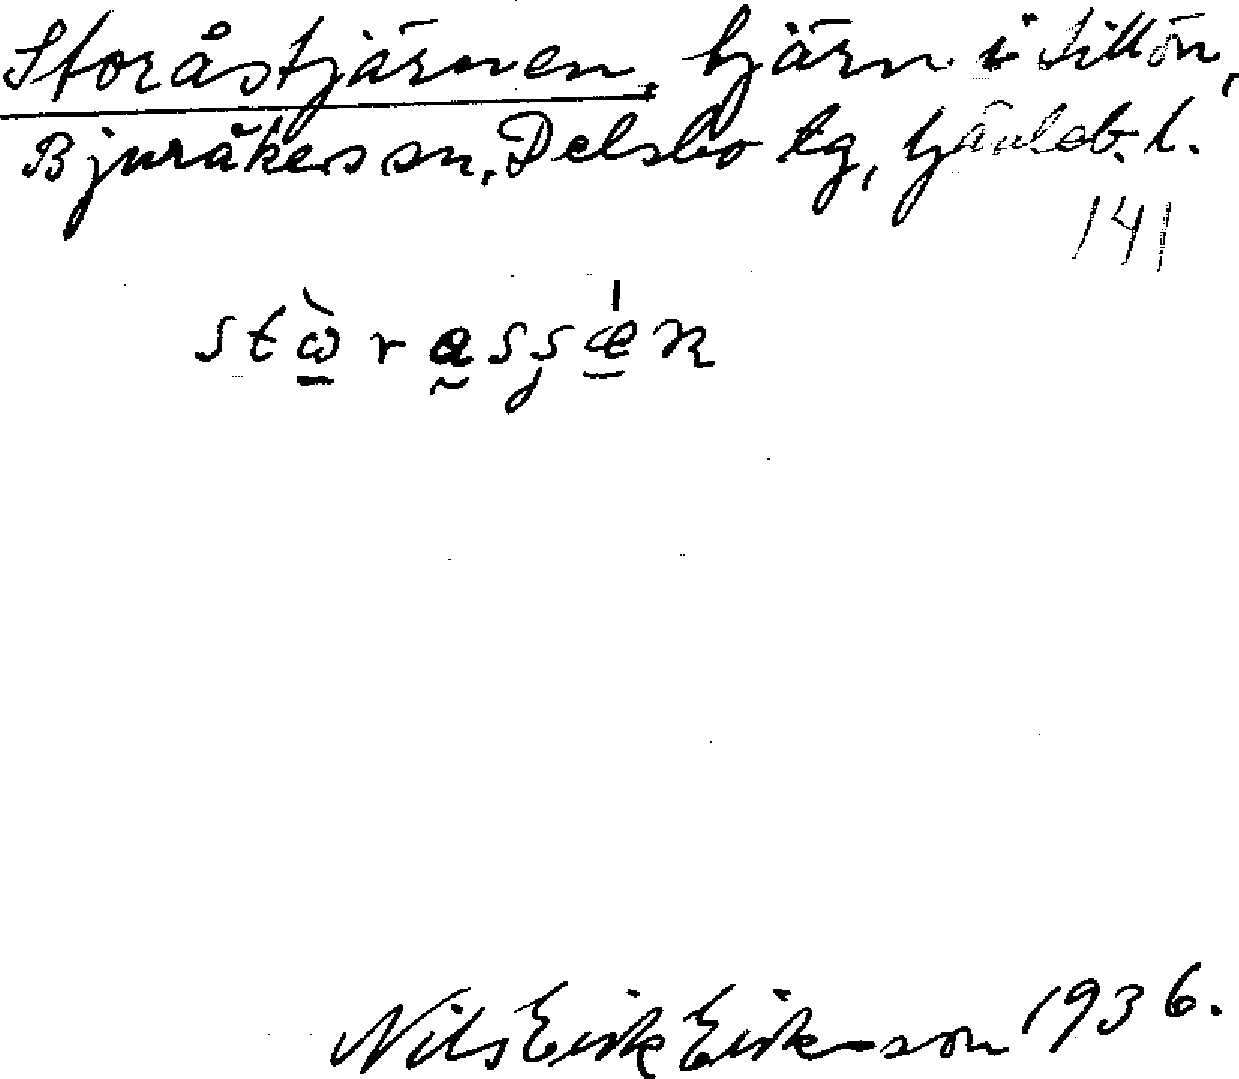 Storåstjärnen, tjärn i Sillön,
Bjuråkers sn, Delsbo tg, Gävleb. l.
141
stὼ̱ra̰sʂǽ̱n
Nils Erik Eriksson 1936.